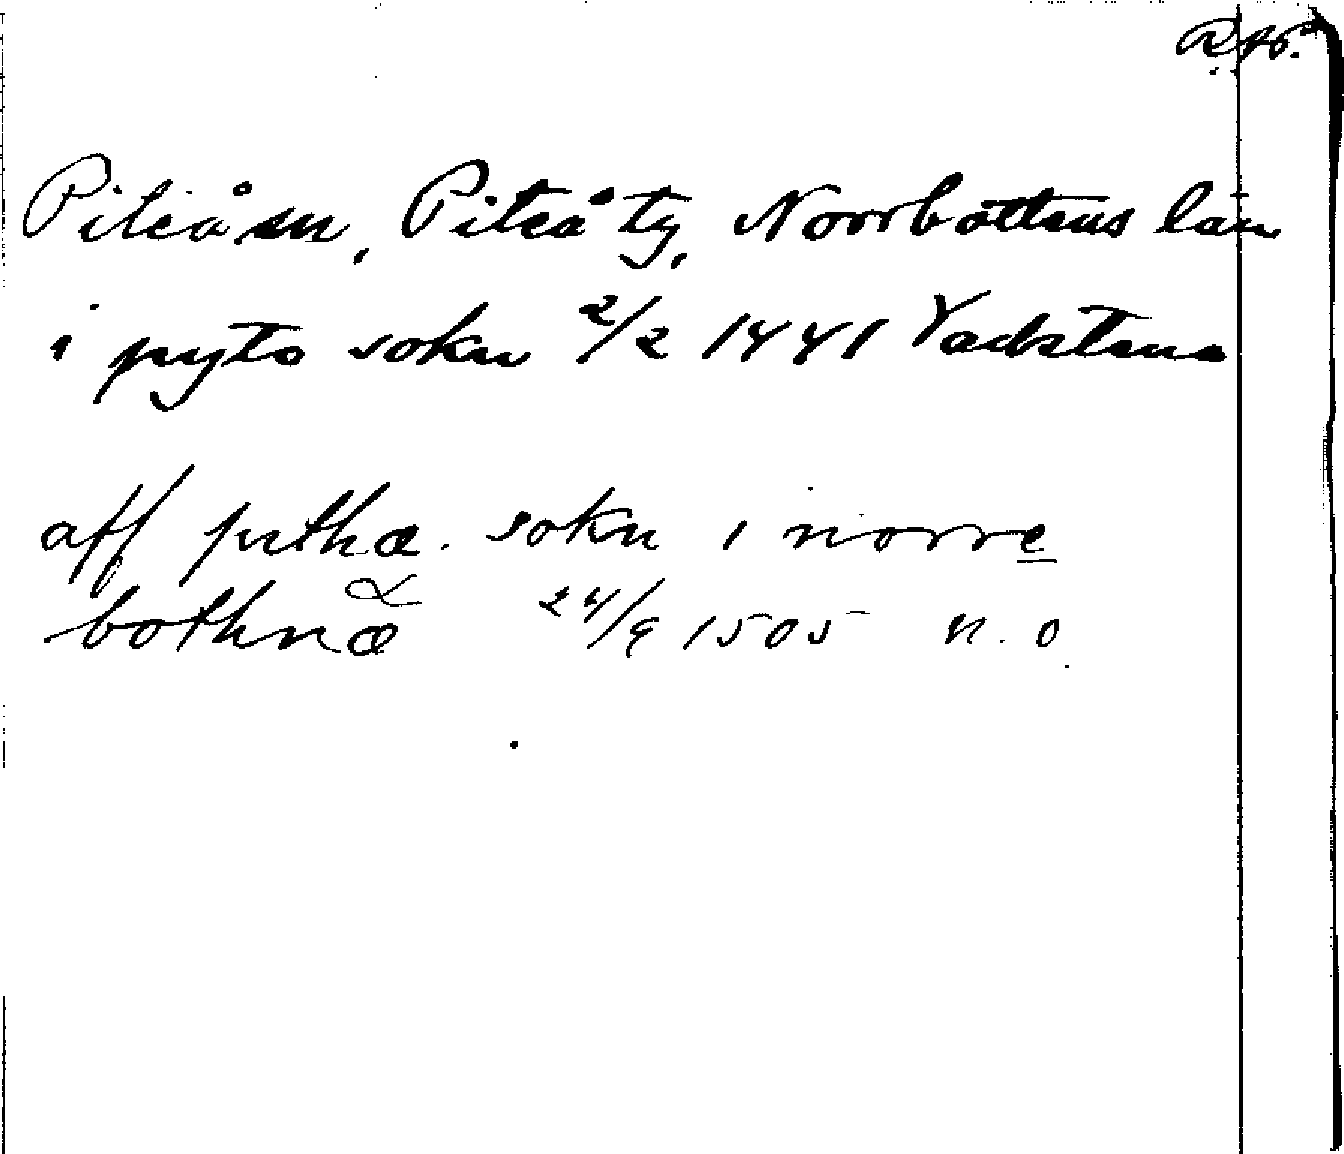 RAp.
Piteå sn, Piteå tg, Norrbottens län
i pyto sokn 2/2 1441 Vadstena
aff pitha sokn i norre
bothnæ 24/9 1505 n. o